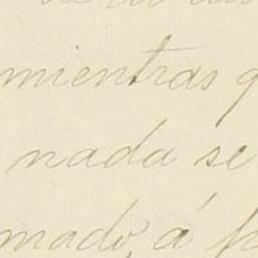 mientras q
nada se
mado, á p